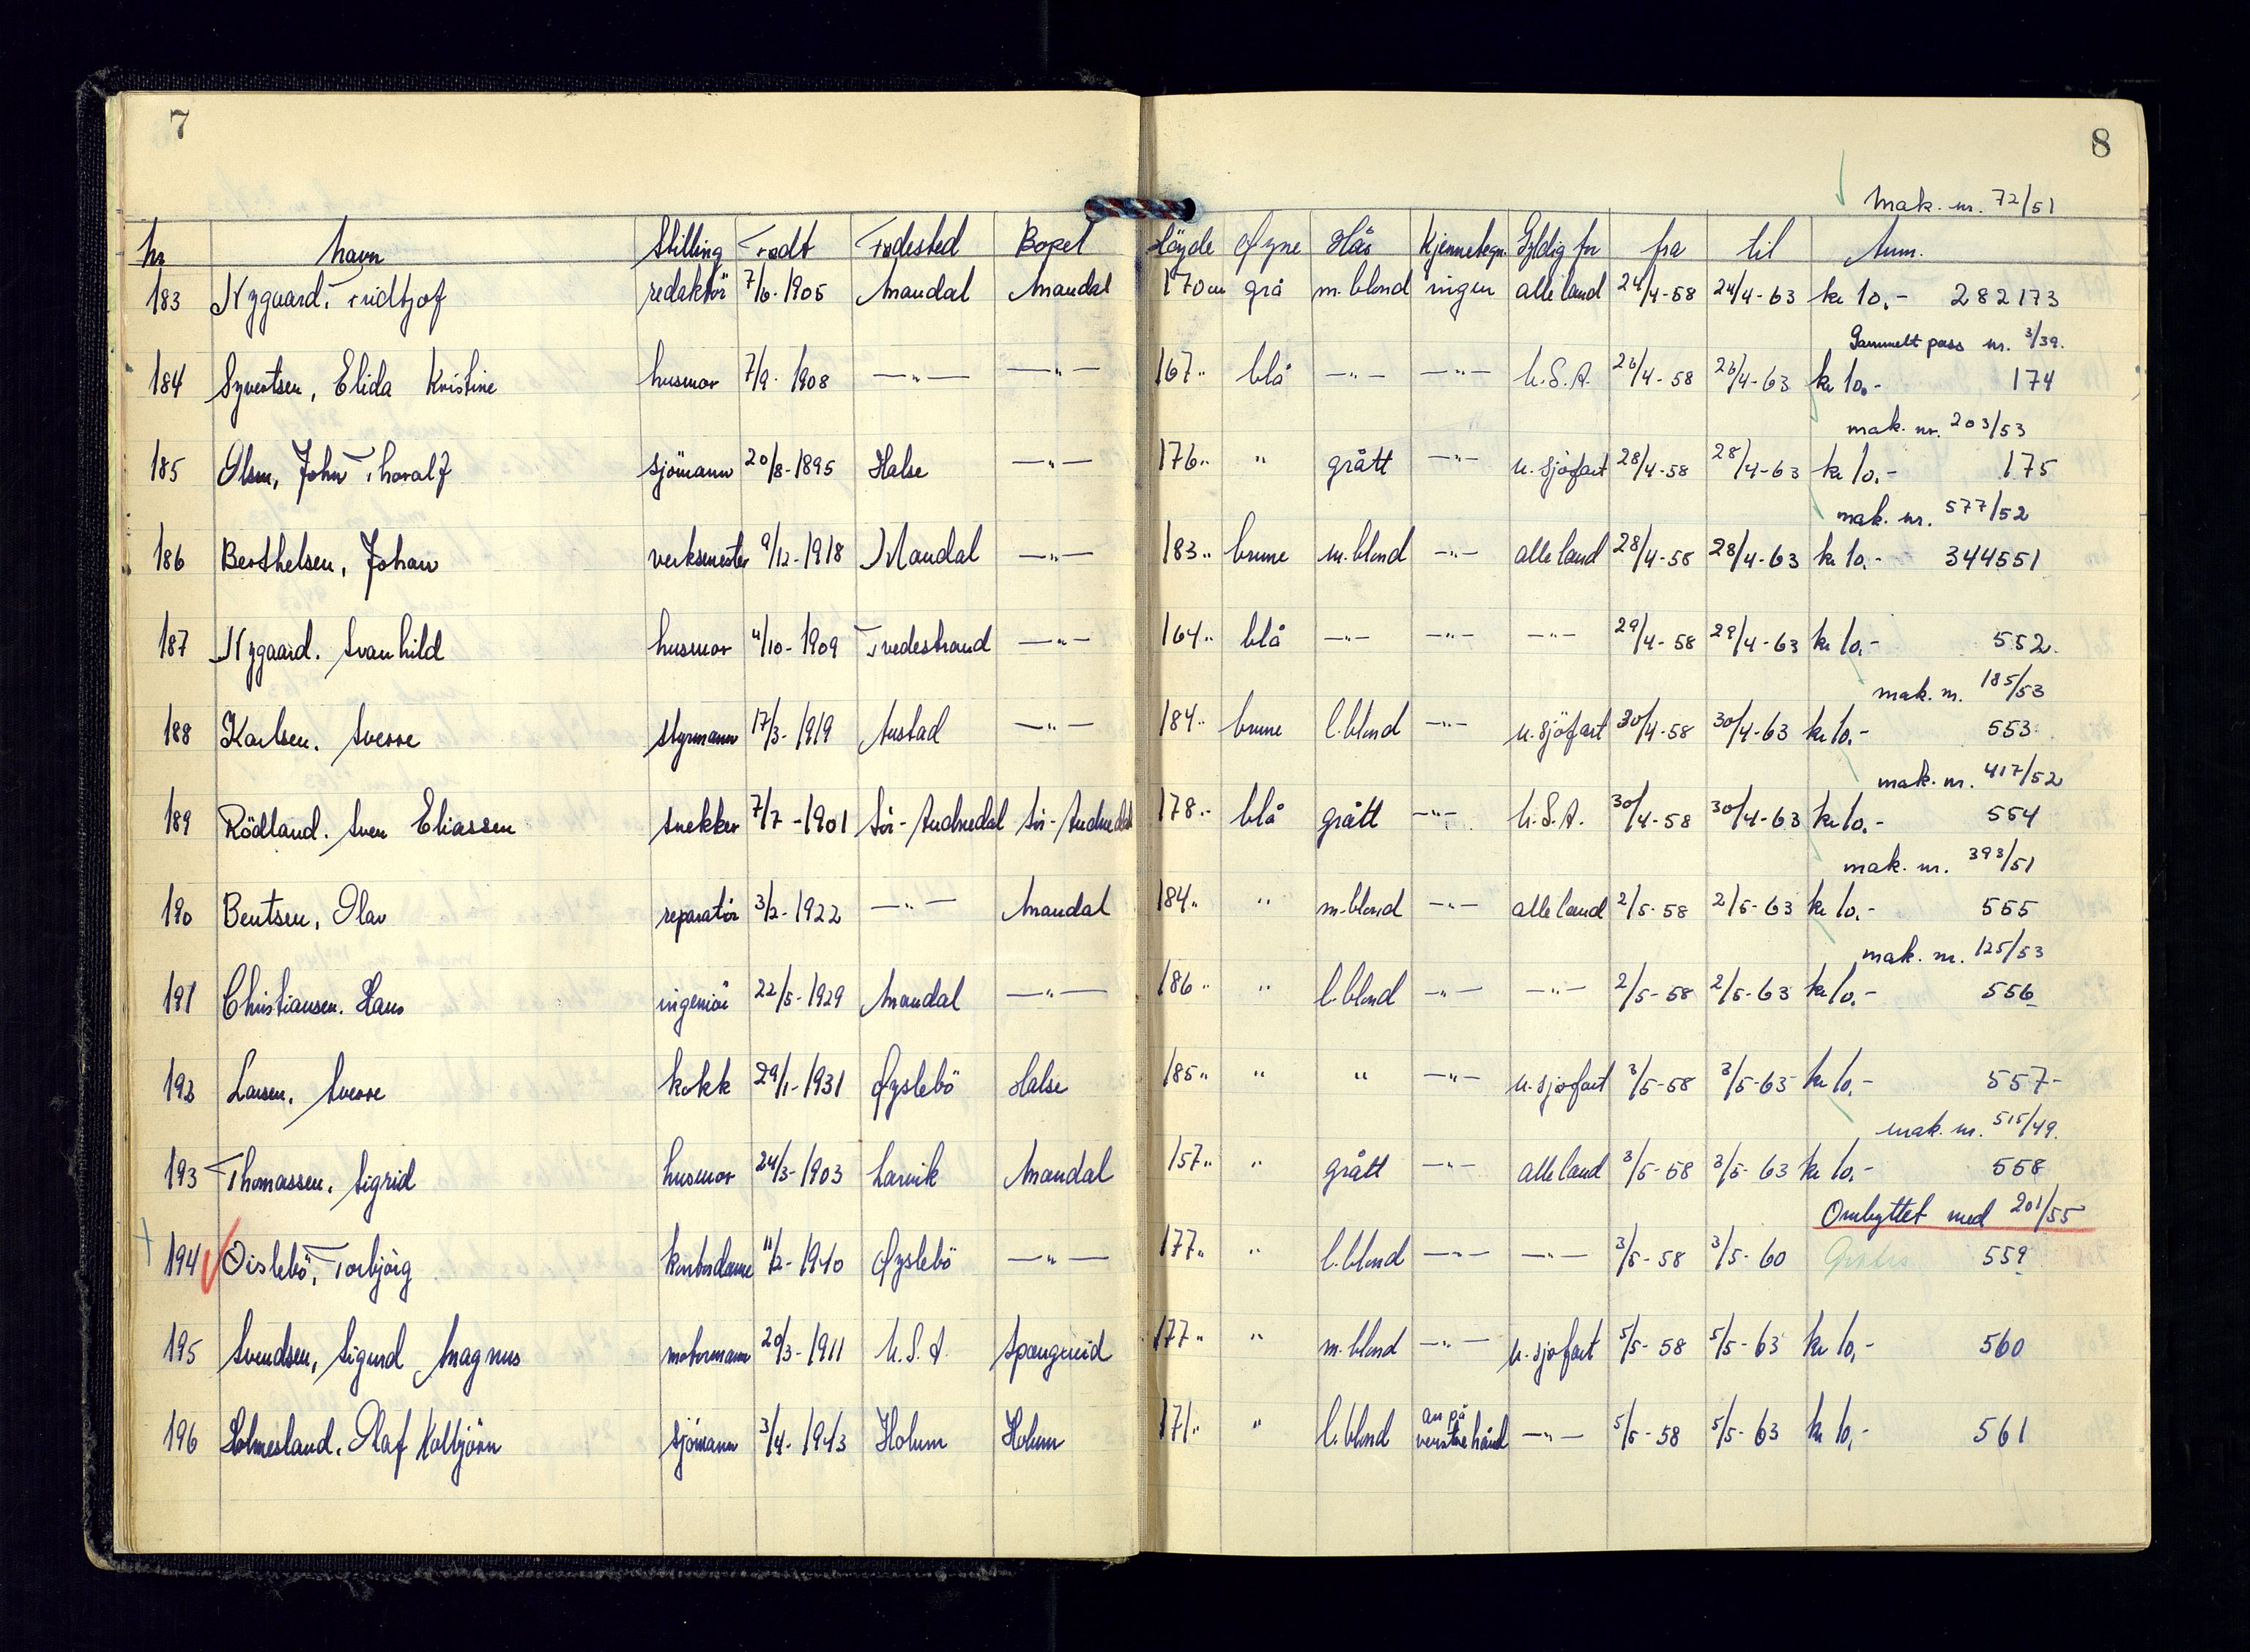 7
8
mak. nr. 72/51
Nr Navn Stilling Født Fødested Bopel Höyde Øyne Hår Kjennetegn. Gyldig for fra til Anm.
183 Nygaard, Fridtjof redaktör 7/6-1905 Mandal Mandal 170 cm grå m.blond ingen alle land 24/4-58 24/4-63 kr 10,- 282173
Gammelt pass nr. 3/39.
184 Syvertsen, Elida Kristine husmor 7/9-1908 —"— —"— 167" blå —"— —"— U.S.A. 26/4-58 26/4-63 kr 10,- 174
mak. nr. 203/53
185 Olsen, John Thoralf sjömann 20/8-1895 Halse —"— 176" " grått —"— u.sjöfart 28/4-58 28/4-63 kr 10,- 175
mak. nr. 577/52
186 Berthelsen, Johan verksmester 9/12-1918 Mandal —"— 183" brune m.blond —"— alle land 28/4-58 28/4-63 kr 10,- 344551
187 Nygaard, Svanhild husmor 4/10-1909 Tvedestrand —"— 164" blå —"— —"— —"— 29/4-58 29/4-63 kr 10,- 552
mak. nr. 185/53
188 Karlsen, Sverre styrmann 17/3-1919 Austad —"— 184" brune l.blond —"— u.sjöfart 30/4-58 30/4-63 kr 10,- 553
mak. nr. 417/52
189 Rödland, Sven Eliassen snekker 7/7-1901 Sör-Audnedal Sör-Audnedal 178" blå grått —"— U.S.A. 30/4-58 30/4-63 kr 10,- 554
mak. nr. 393/51
190 Bentsen, Olav reparatör 3/2-1922 —"— Mandal 184" " m.blond —"— alle land 2/5-58 2/5-63 kr 10,- 555
mak. nr. 125/53
191 Christiansen, Hans ingeniör 22/5-1929 Mandal —"— 186" " l.blond —"— —"— 2/5-58 2/5-63 kr 10,- 556
192 Larsen, Sverre kokk 29/1-1931 Øyslebö Halse 185" " " —"— u.sjöfart 3/5-58 3/5-63 kr 10,- 557
mak. nr. 515/49.
193 Thomassen, Sigrid husmor 24/3-1903 Larvik Mandal 157" " grått —"— alle land 3/5-58 3/5-63 kr 10,- 558
Ombyttet med 201/55
194 Öislebö, Torbjörg kontordame 11/2-1940 Øyslebö —"— 177" " l.blond —"— —"— 3/5-58 3/5-60 Gratis 559
195 Svendsen, Sigurd Magnus motormann 20/3-1911 U.S.A. Spangereid 177" " m.blond —"— u.sjöfart 5/5-58 5/5-63 kr 10,- 560
196 Holmesland, Olaf Kolbjörn sjömann 3/4-1943 Holum Holum 171" " l.blond arr på venstre hånd —"— 5/5-58 5/5-63 kr 10,- 561